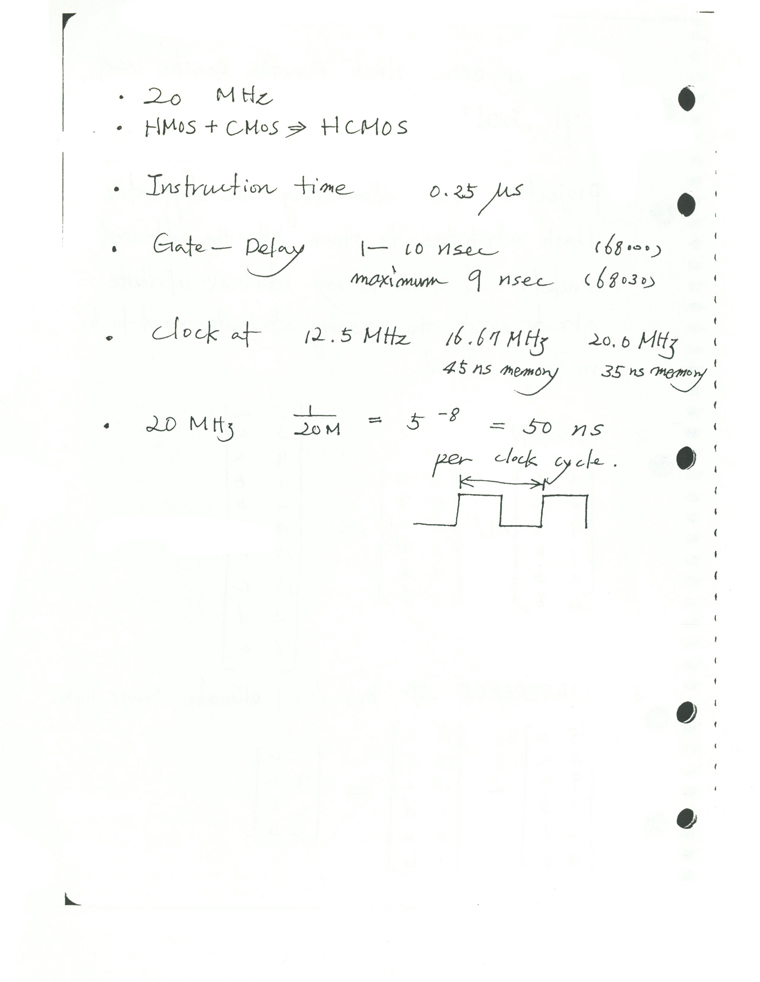 · 20 MHz
· HMOS + CMOS ⇒ HCMOS
· Instruction time 0.25 μs
· Gate – Delay 1 – 10 nsec (68000)
maximum 9 nsec (68030)
· Clock at 12.5 MHz 16.67 MHz 20.0 MHz
45 ns memory 35 ns memory
· 20 MHz 1/20M = 5⁻⁸ = 50 ns
per clock cycle.